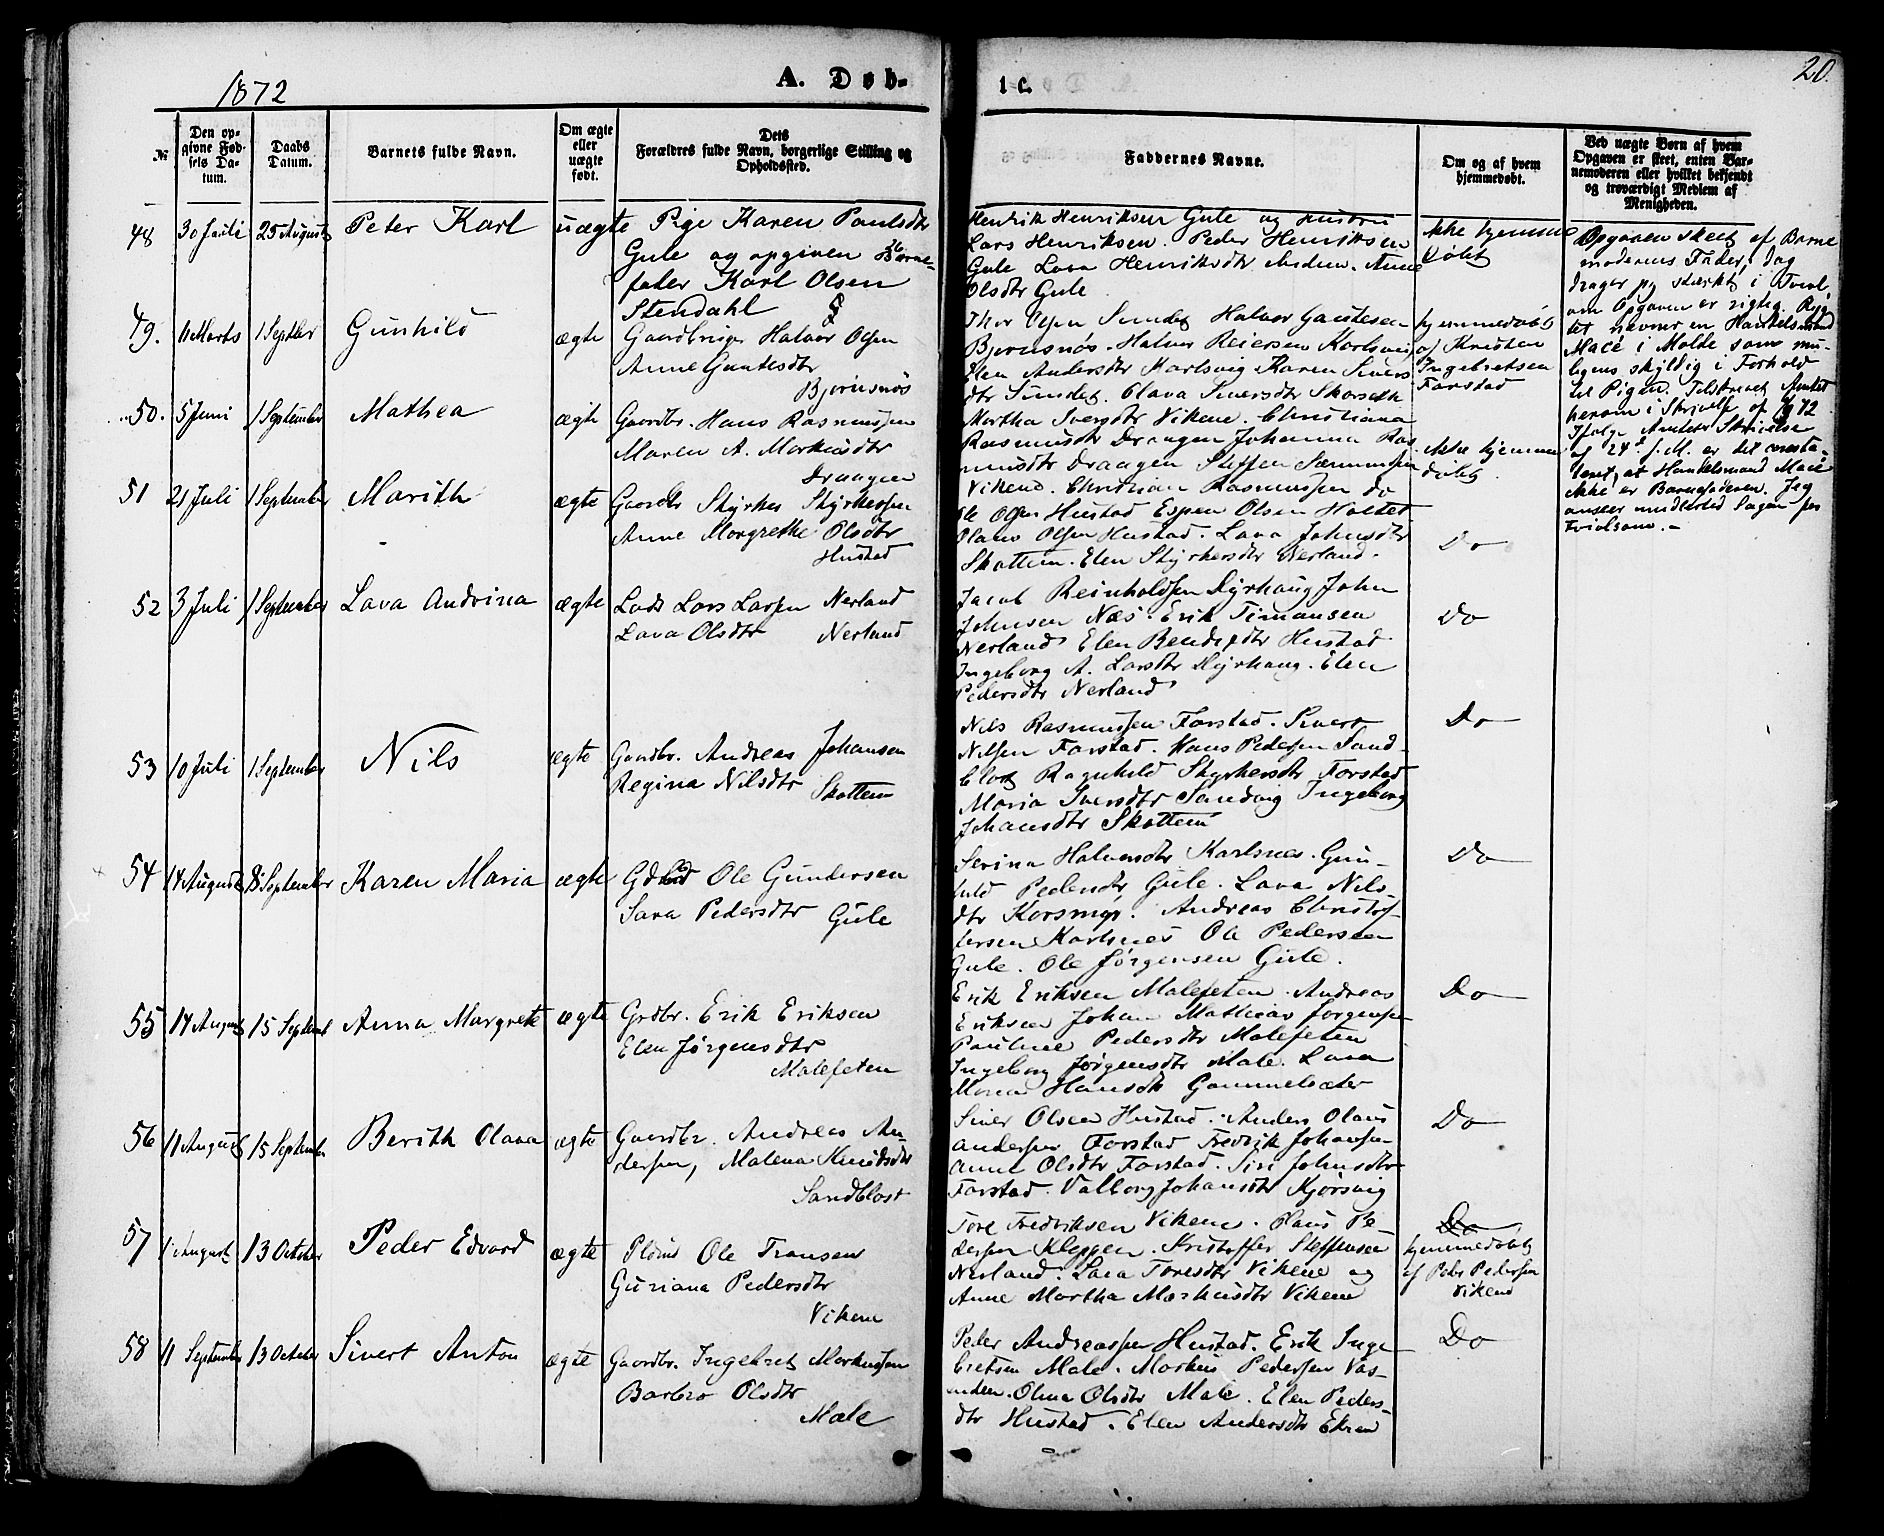 1872
A. Døb-
1 c.
20.
№
Den op-
givne Fød-
sels Da-
tum.
Daabs
Datum.
Barnets fulde Navn.
Om ægte
eller
uægte
født.
Dets
Forældres fulde Navn, borgerlige Stilling og
Opholdssted.
Faddernes Navne.
Om og af hvem
hjemmedøbt.
Ved uægte Børn af hvem
Opgaven er skeet, enten Bar-
nemoderen eller hvilket bekjendt
og troværdigt Medlem af
Menigheden.
48 30 Juli 25 August Peter Karl uægte Pige Karen Paulsdtr
Gule og opgiven Barne-
fader Karl Olsen
Stendahl
Henrik Henriksen Gule og Hustru
Lars Henriksen. Peder Henriksen
Gule Lava Henriksdtr Anne
Olsdtr Gule
Ikke hjemme
døbt
Opgaven skeet af Barne
moderens Fader, Jeg
drager jeg stærkt i Tvivl,
om Opgaven er rigtig. Ryg-
tet nævner en Handelsmand
Macé i Molde som mu-
ligens skyldig i Forhold
til Pigen. Tilskrevet Amtet
herom i Skrivelse af
Ifølge Amtets Skrivelse
af 24d. f. M. er det consta-
teret, at Handelsmand Macé
ikke er Barnefaderen. Jeg
anseer imidlertid Sagen for
tvivlsom. -
49. 11 Marts 1 Septbr Gunhild ægte Gaardbruger Halvor Olsen
Anne Gautesdtr
Bjørnsnøs
Thor Olsen Sundet Halvor Gautesen
Bjørnsnøs. Halvor Reiersen Karlsvig
Elen Andersdtr Karlsvig Karen Sivers
dtr Sundet. Olava Siversdtr Skorseth
hjemmedøbt
af Kristen
Ingebretsen
Farstad
50. 5 Juni 1 September Mathea ægte Gaardbr. Hans Rasmussen
Maren A. Markusdtr
Draagen
Martha Iversdtr Vikene. Christiana
Rasmusdtr Draagen Johanna Ras
musdtr Draagen Steffen Sæmundsen
Vikene. Christian Rasmussen do
Ikke hjemme
døbt
51 21 Juli 1 September Marith ægte Gaardbr Styrker Styrkersen
Anne Margrethe Olsdtr
Hustad
Ole Olsen Hustad Espen Olsen Holtet
Olaus Olsen Hustad. Lava Johnsdtr
Skottem. Elen Styrkersdtr Nerland.
Do
52 3 Juli 1 September Lava Andrina ægte Lods Lars Larsen Nerland
Lava Olsdtr Nerland
Jacob Reinholdsen Dyrhaug John
Johnsen Næs. Erik Timansen
Nerland Elen Bendixdtr Hustad
Ingeborg A. Larsdtr Dyrhaug. Elen
Pedersdtr Nerland
Do
53 10 Juli 1 September Nils ægte Gaardbr. Andreas Johansen
Regina Nilsdtr Skottem
Nils Rasmussen Farstad. Sivert
Nilsen Farstad. Hans Pedersen Sand-
blost Ragnhild Styrkersdtr Farstad
Maria Iversdtr Sandvig Ingeborg
Johansdtr Skottem
Do
54 14 August 8 September Karen Maria ægte Ole Gundersen
Sara Pedersdtr Gule
Serina Halversdtr Karlsnes. Gun-
hild Pedersdtr Gule. Lava Nils-
dtr Korsmyr. Andreas Christof-
fersen Karlsnes Ole Pedersen
Gule. Ole Jørgensen Gule.
Do
55 14 August 15 Septembr Anna Margrete ægte Grdbr. Erik Eriksen
Elen Jørgensdtr
Malefeten
Erik Eriksen Malefeten. Andreas
Eriksen Johan Mathias Jørgensen
Pauline Pedersdtr Malefeten
Ingeborg Jørgensdtr Male. Lava
Maria Hansdtr Gammelsæter
Do
56 11 August 15 September Berith Olava ægte Gaardbr. Andreas An-
dersen, Malena Knudsdtr
Sandblost
Siver Olsen Hustad. Anders Olaus
Andersen Farstad Fredrik Johansen
Anne Olsdtr Farstad. Siri Johnsdtr
Farstad. Valborg Johansdtr Kjørsvig
Do
57 11 August 13 October Peder Edvard ægte Ole Fransen
Guriana Pedersdtr
Vikene
Tore Fredriksen Vikene. Olaus Pe-
dersen Kleppen. Kristoffer Steffensen
Nerland. Lava Toresdtr Vikene og
Anne Martha Markusdtr Vikene
Do
hjemmedøbt
af Peder Pedersen
Vikene
58 11 September 13 October Sivert Anton ægte Gaardbr. Ingebret Markussen
Barbro Olsdtr
Male
Peder Andreassen Hustad. Erik Inge
bretsen Male. Markus Pedersen Vas-
Olina Olsdtr Male. Elen Peders-
dtr Hustad. Elen Andersdtr Ekren
Do